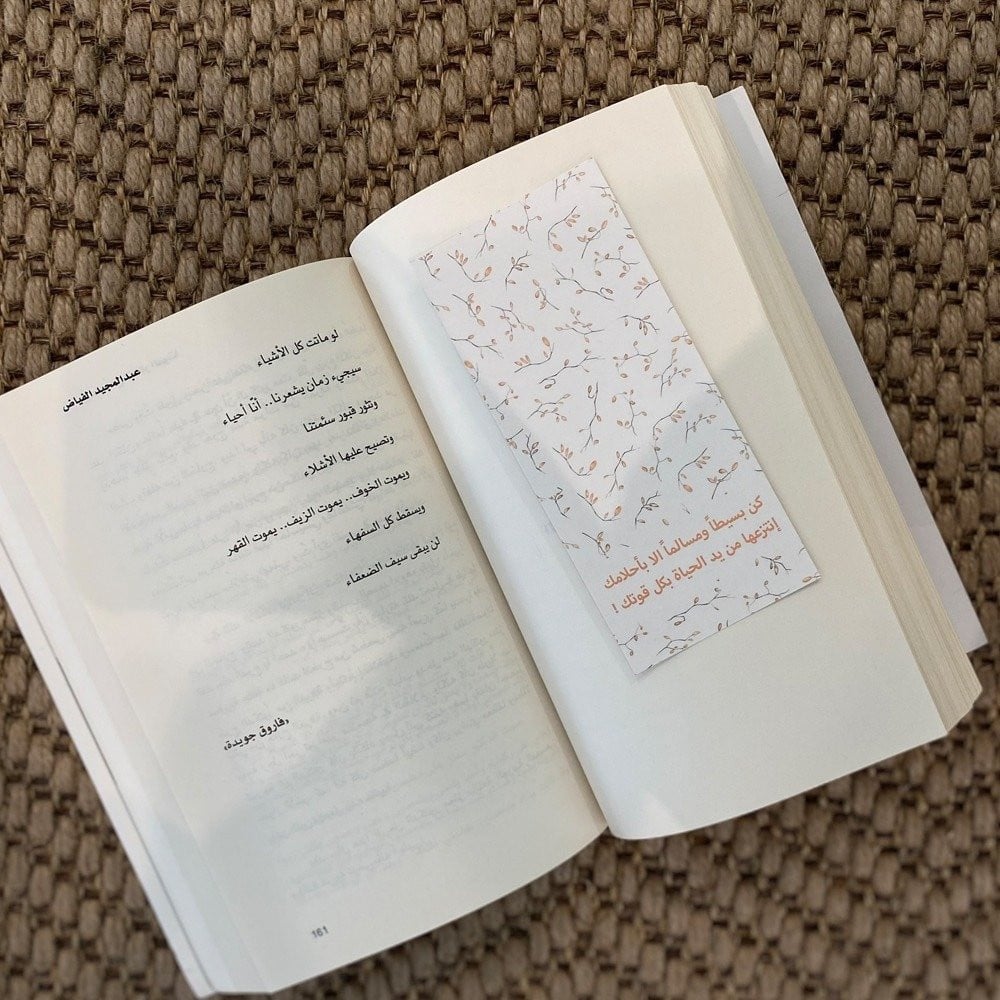 عبدالمجيد الفياض
لو ماتت كل الأشياء
سيجيء زمان يشعرنا.. أنّا أحياء
وتثور قبور سئمتنا
وتصيح عليها الأشلاء
ويموت الخوف.. يموت الزيف.. يموت القهر
ويسقط كل السفهاء
لن يبقى سيف الضعفاء
«فاروق جويدة»
161
كن بسيطاً ومسالماً الا بأحلامك
إنتزعها من يد الحياة بكل قوتك !